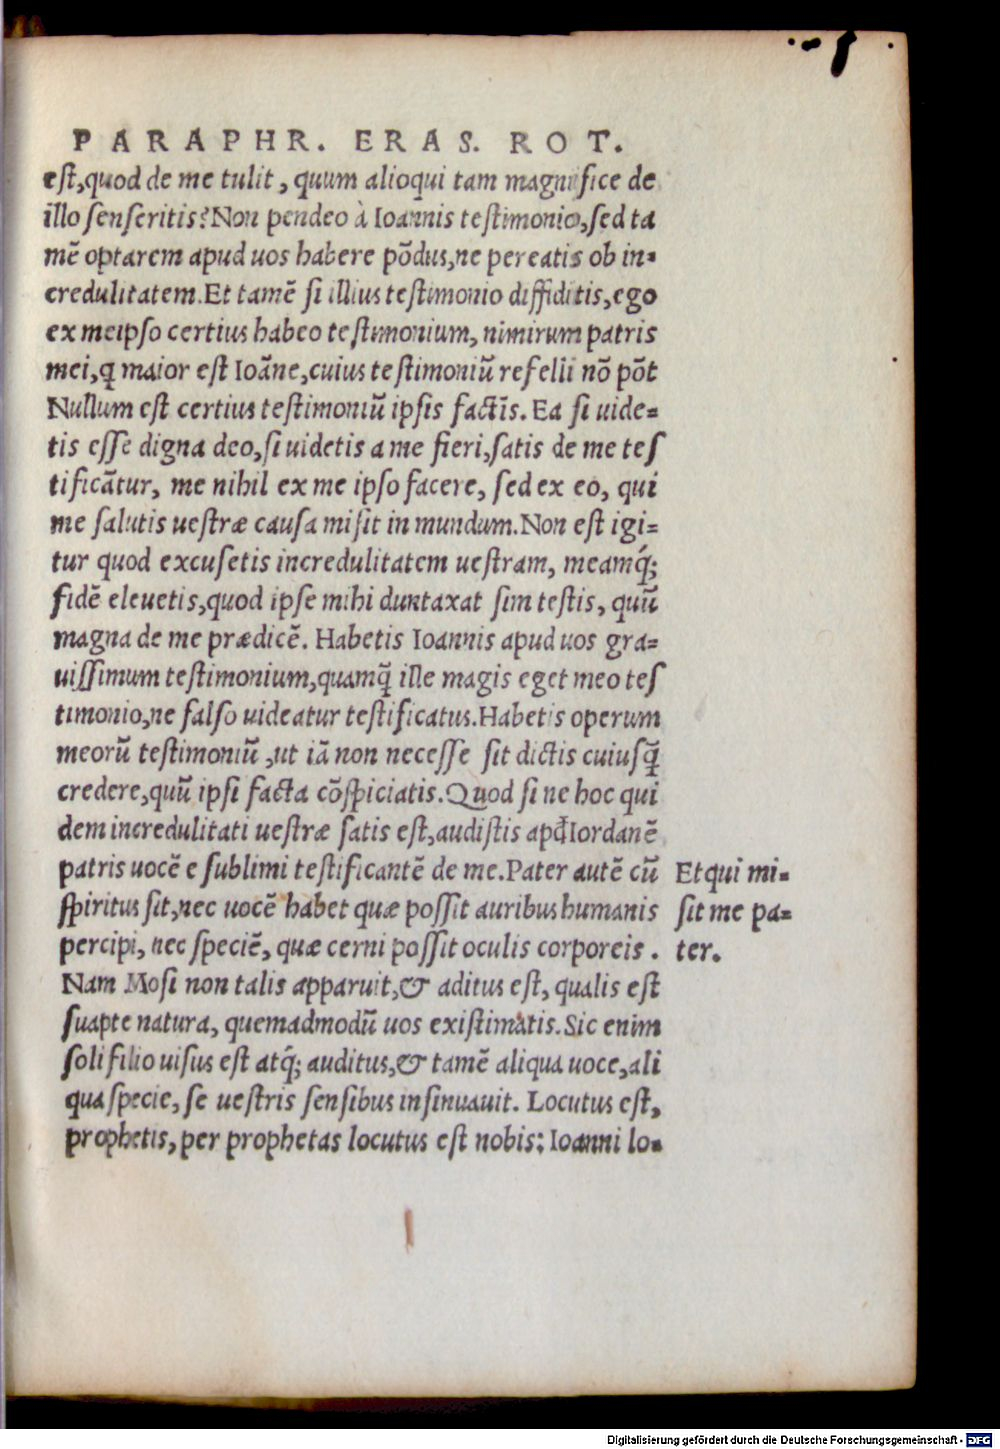 PARAPHR. ERAS. ROT.
est, quod de me tulit, quum alioqui tam magnifice de
illo senseritis? Non pendeo à Ioannis testimonio, sed ta
mē optarem apud uos habere pōdus, ne pereatis ob in-
credulitatem. Et tamē si illius testimonio diffiditis, ego
ex meipso certius habeo testimonium, nimirum patris
mei, q̃ maior est Ioāne, cuius testimoniū refelli nō pōt
Nullum est certius testimoniū ipsis factīs. Ea si uide-
tis esse digna deo, si uidetis a me fieri, satis de me tes
tificātur, me nihil ex me ipso facere, sed ex eo, qui
me salutis uestræ causa misit in mundum. Non est igi-
tur quod excusetis incredulitatem uestram, meamq́;
fidē eleuetis, quod ipse mihi duntaxat sim testis, quū
magna de me prædicē. Habetis Ioannis apud uos gra-
uissimum testimonium, quamq̃ ille magis eget meo tes
timonio, ne falso uideatur testificatus. Habetis operum
meorū testimoniū, ut iā non necesse sit dictis cuiusq̃
credere, quū ipsi facta cōspiciatis. Quod si ne hoc qui
dem incredulitati uestræ satis est, audistis apđ Iordanē
patris uocē e sublimi testificantē de me. Pater autē cū
spiritus sit, nec uocē habet quæ possit auribus humanis
percipi, nec speciē, quæ cerni possit oculis corporeis.
Nam Mosi non talis apparuit, & aditus est, qualis est
suapte natura, quemadmodū uos existimatis. Sic enim
soli filio uisus est atq́; auditus, & tamē aliqua uoce, ali
qua specie, se uestris sensibus insinuauit. Locutus est,
prophetis, per prophetas locutus est nobis: Ioanni lo-
Et qui mi-
sit me pa-
ter.
Digitalisierung gefördert durch die Deutsche Forschungsgemeinschaft - DFG